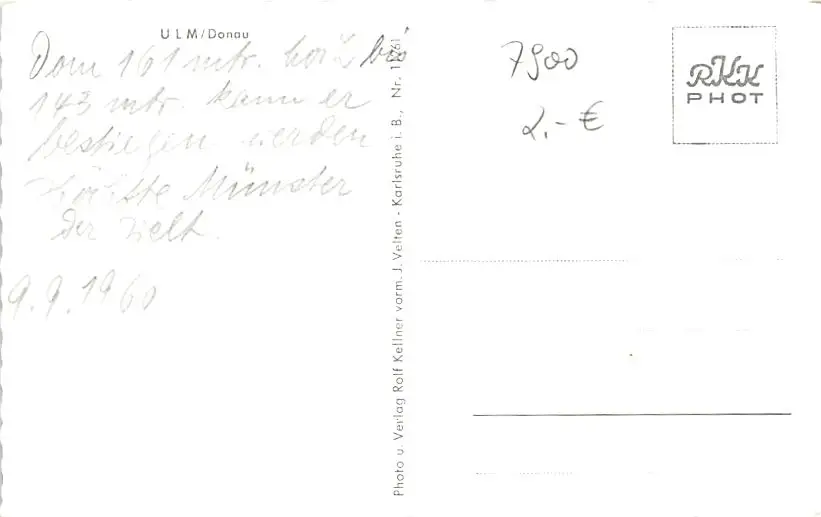 ULM/Donau
Dom 161 mtr. hoch bis
143 mtr. kann er
bestiegen werden
Höchste Münster
der Welt.
9.9.1960
Photo u. Verlag Rolf Kellner vorm. J. Velten - Karlsruhe i. B., Nr.
7900
2.- €
RKK
PHOT